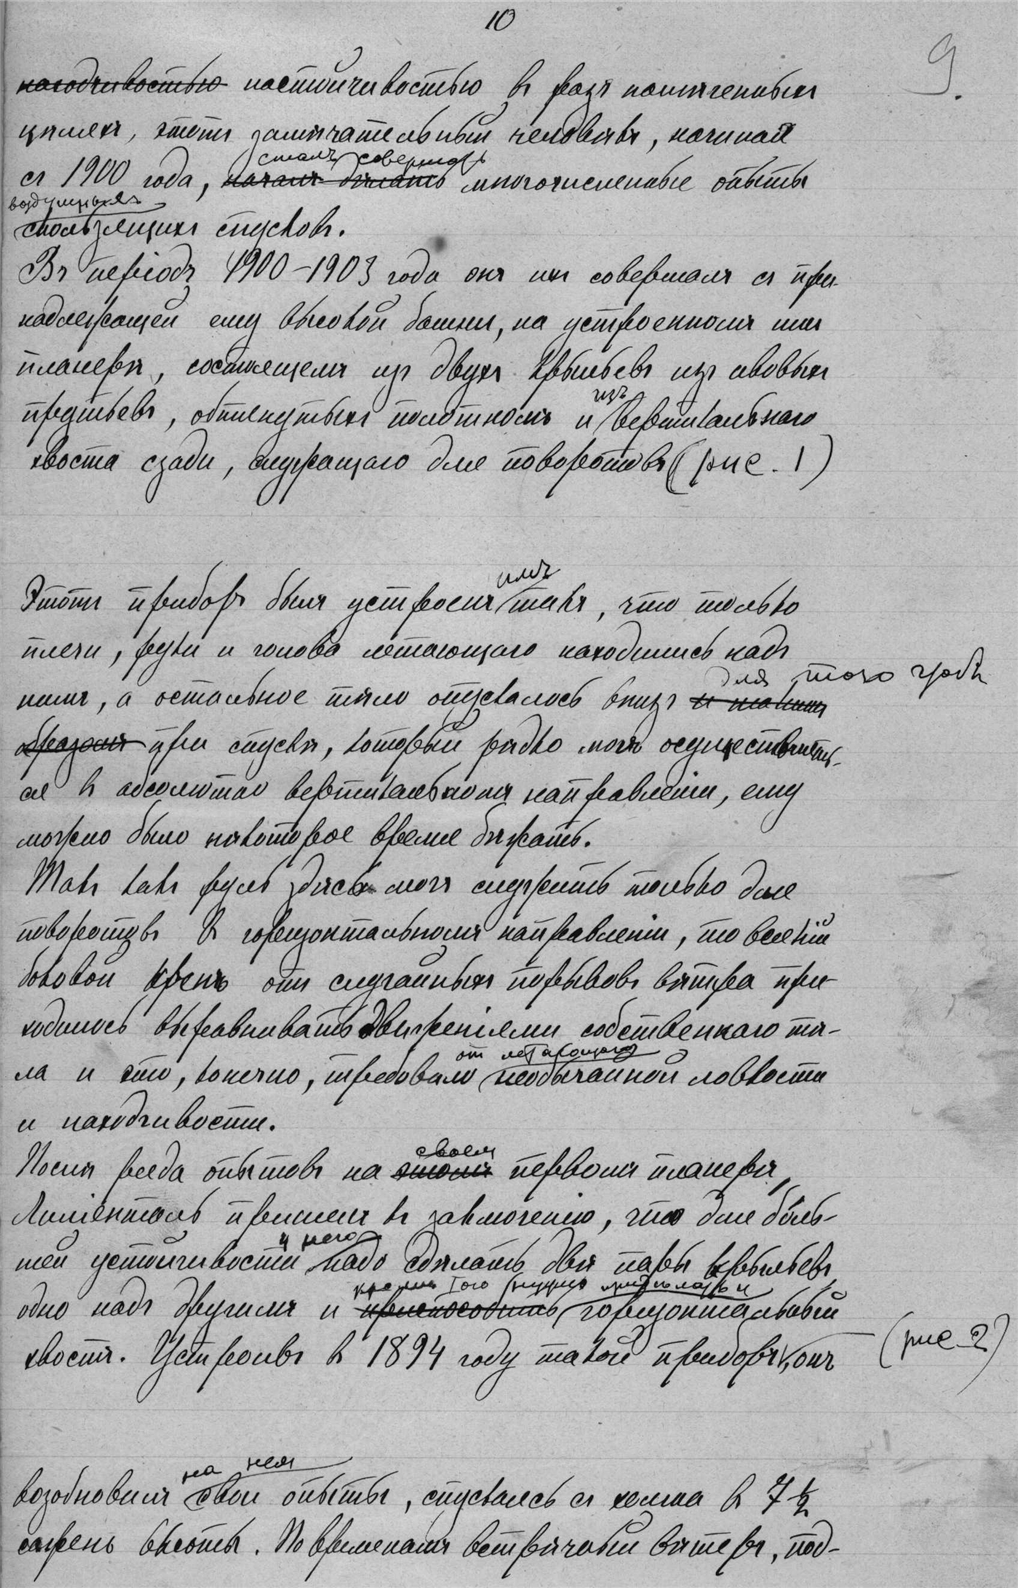 10
9.
находчивостью настойчивостью въ разъ намѣченныхъ
цѣляхъ, этотъ замѣчательный человѣкъ, начиная
сталъ совершать
съ 1900 года, началъ дѣлать многочисленные опыты
воздушныхъ
скользящихъ спусковъ.
Въ періодъ 1900–1903 года онъ ихъ совершалъ съ при-
надлежащей ему высокой башни, на устроенномъ имъ
планерѣ, состоящемъ изъ двухъ крыльевъ изъ ивовыхъ
изъ
прутьевъ, обтянутыхъ полотномъ и вертикальнаго
хвоста сзади, служащаго для поворотовъ (рис. 1)
имъ
Этотъ приборъ былъ устроенъ такъ, что только
плечи, руки и голова летающаго находились надъ
для того чтобъ
нимъ, а остальное тѣло опускалось внизъ и такимъ
образомъ при спускѣ, который рѣдко могъ осуществлять-
ся въ абсолютно вертикальномъ направленіи, ему
можно было нѣкоторое время бѣжать.
Такъ какъ руль здѣсь могъ служить только для
поворотовъ въ горизонтальномъ направленіи, то всякій
боковой кренъ отъ случайныхъ порывовъ вѣтра при-
ходилось выравнивать движеніями собственнаго тѣ-
от летающаго
ла и это, конечно, требовало необычайной ловкости
и находчивости.
своем
Послѣ ряда опытовъ на этомъ первомъ планерѣ,
Лиліенталь пришелъ къ заключенію, что для боль-
у него
шей устойчивости надо сдѣлать двѣ пары крыльевъ
кромѣ того
одно надъ другимъ и приспособить горизонтальный
хвостъ. Устроивъ въ 1894 году такой приборъ, онъ (рис. 2)
на нем
возобновилъ свои опыты, спускаясь съ холма въ 7 ½
сажень высоты. По временамъ встрѣчный вѣтеръ, под-